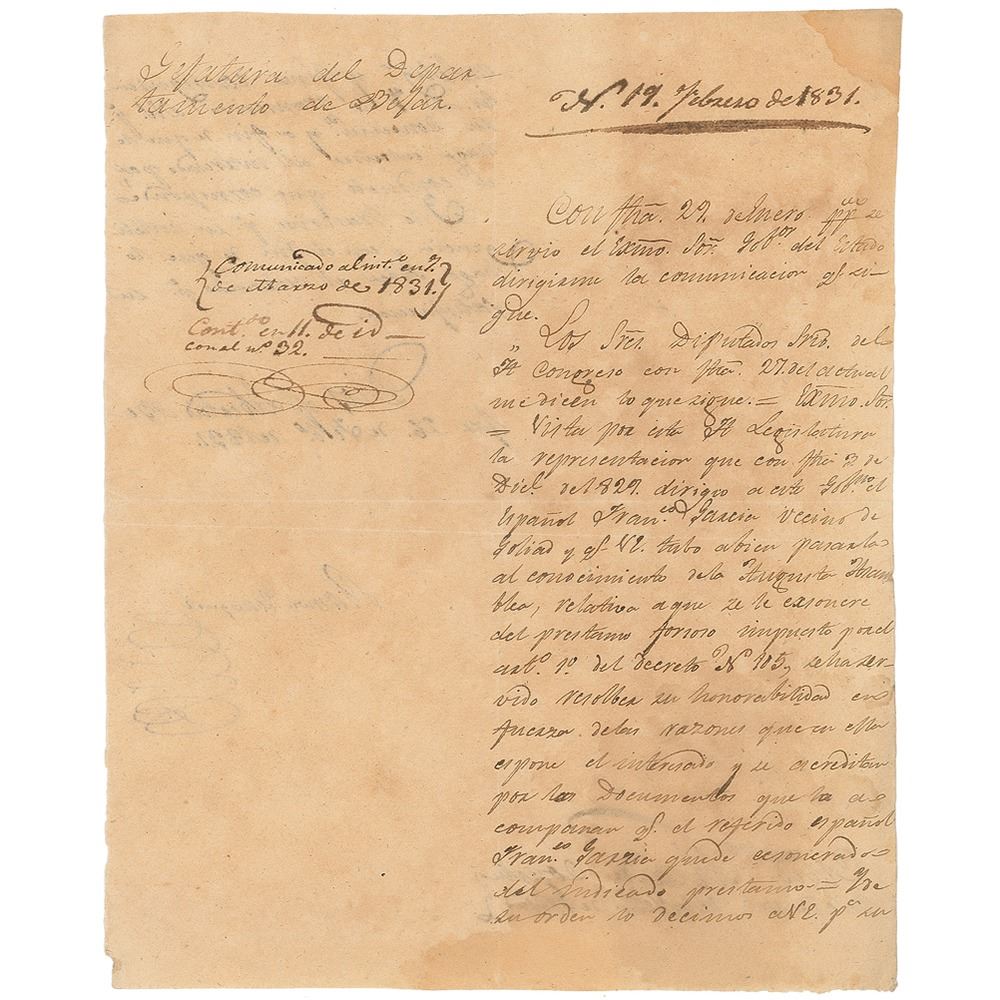 Gefatura del Depar-
tamento de Bejar.
N.º 19. Febrero de 1831.
Comunicado al int.º en 9.
de Marzo de 1831.
Cont.do en 11. de id
con el n.º 32.
Con fha. 29. de Enero ppdo se
sirvio el Exmo. Sor. Gob.or del Estado
dirigirme la comunicacion q.e si-
gue.
„ Los Sres. Diputados Srios. del
H Congreso con fha. 27. del actual
me dicen lo que sigue. = Exmo. Sor.
= Vista por esta H Legislatura
la representacion que con fha 2 de
Die. del 1829. dirigio a ese Gob.no el
Español Fran.co Garcia vecino de
Goliad y q.e VE. tubo abien pasarla
al conocimiento dela Augusta Asam
blea, relativa a que se le exsonere
del prestamo forsoso impuesto por el
art.º 1.º del decreto N.º 105, se ha ser-
vido resolber su honorabilidad en
fuersa delas razones que en ella
espone el interesado y se acreditan
por los Documentos que la a-
compañan q.e el referido español
Fran.co Garcia quede exsonerado
del indicado prestamo = Y de
su orden lo decimos a VE. p.a su